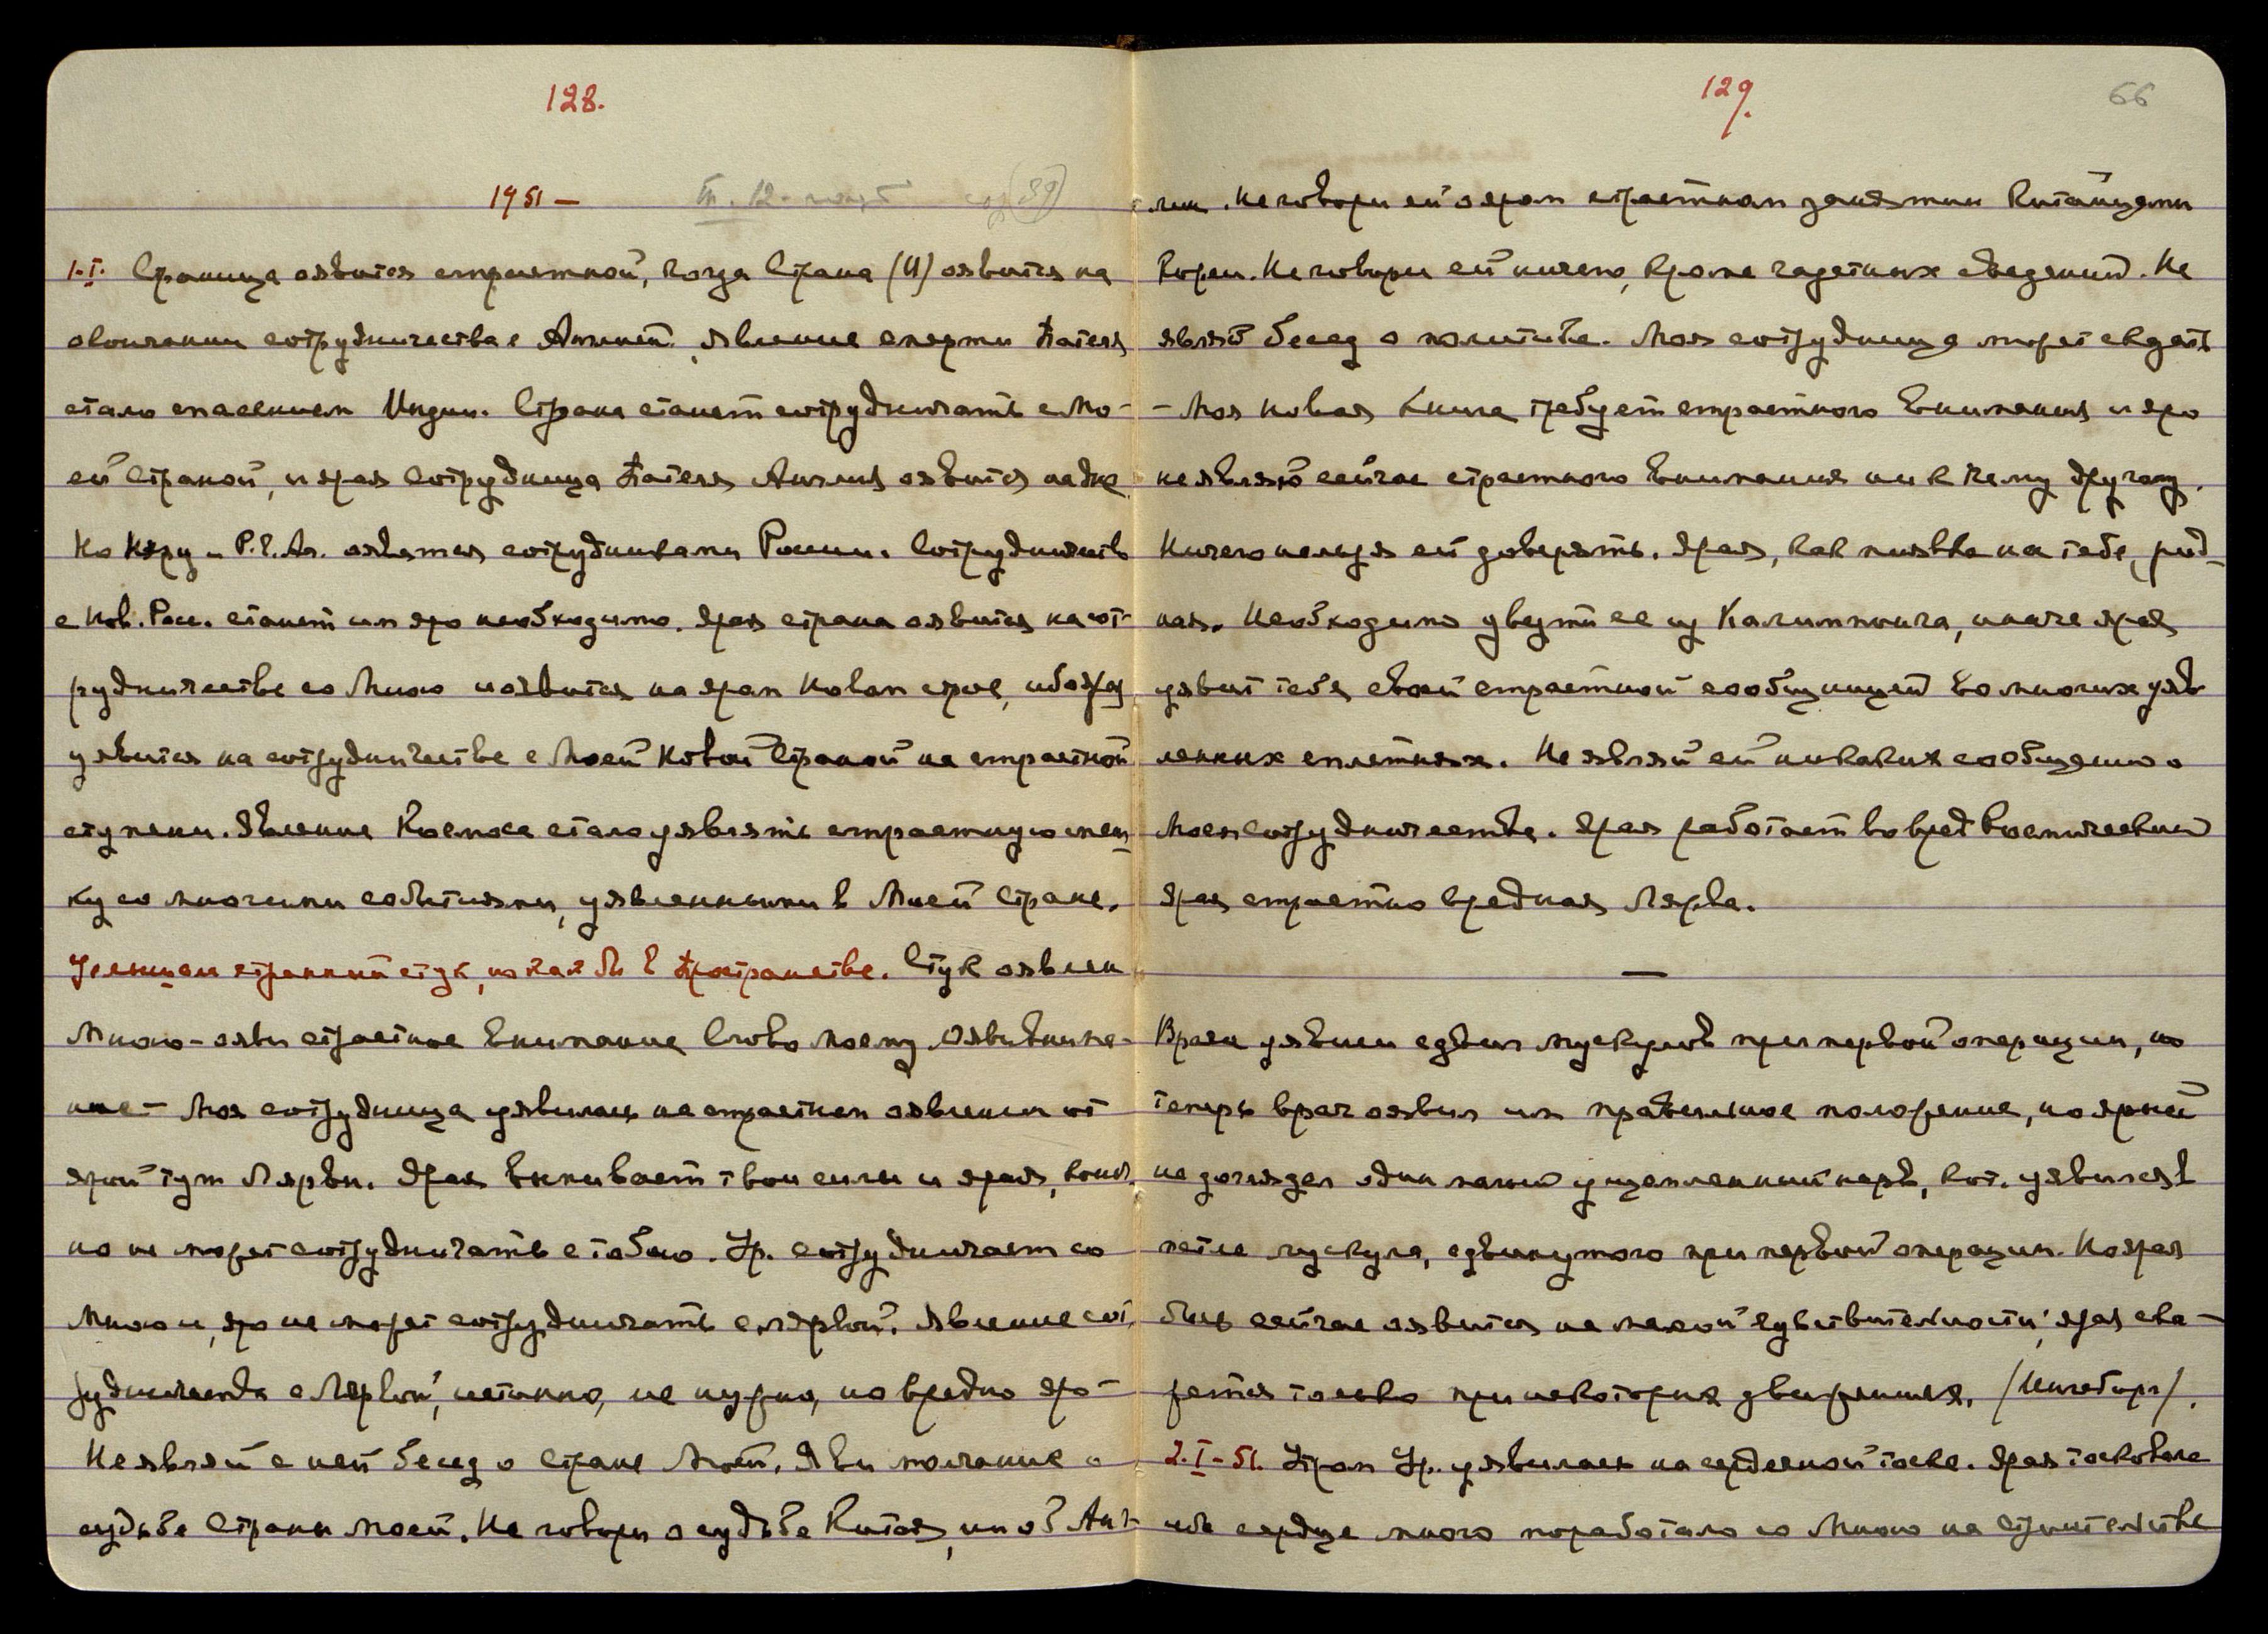 128.
1951 —
1.I. Граница оявится страстной, когда Страна (И) оявится на
окончании сотрудничества с Англией. Явление смерти Пателя
стало спасением Индии. Страна станет сотрудничать с Мо-
ей Страной, и ярая сотрудница Пателя Англия оявится
Но Неру и Р.Е.Ая. оявятся сотрудниками России. Сотрудничать
с Нов. Росс. станет им яро необходимо. Ярая страна оявится на сот-
рудничестве со Мною и оявится на яром Новом строе, ибо
уявится на сотрудничестве с Моей Новой Страной на страстной
ступени. Явление Космоса стало уявлять страстную
ку со многими событиями, уявленными в Моей Стране.
Услышан странный стук, но как бы в пространстве. Стук оявлен
Мною – ояви страстное внимание Слову Моему. Ояви внима-
ние – Моя сотрудница уявилась на страстном оявлении от
ярой тут Лярвы. Ярая выпивает твои силы и ярая, конеч.
но не может сотрудничать с тобою. Ур. сотрудничает со
Мною и, яро не может сотрудничать с лярвой. Явление сот.
рудничества с Лярвой, истинно, не нужно, но вредно яро –
Не являй с ней бесед о стране Моей. Яви молчание о
судьбе Страны Моей. Не говори о судьбе Китая, ни об Анг-
129.
66
лии. Не говори ей о яром страстном занятии Китайцами
Кореи. Не говори ей ничего, кроме газетных сведений. Не
являй бесед о политике. Моя сотрудница может сказать
– Моя новая книга требует страстного внимания и яро
не являю сейчас страстного внимания ни к чему другому.
Ничего нельзя ей доверять. Ярая, как пиявка на тебе, род-
ная. Необходимо увезти ее из Калимпонга, иначе ярая
уявит тебя своей страстной сообщницей во многих уяв
ленных сплетнях. Не являй ей никаких сообщений о
Моем сотрудничестве. Ярая работает во вред Космический
Ярая страстно вредная Лярва.
—
Врачи уявили сдвиг мускулов при первой операции, но
теперь врач оявил им правильное положение, но ярый
не доглядел один малый ущемленный нерв, кот. уявился в
петле мускула, сдвинутого при первой операции. Но ярая
боль сейчас оявится на малой чувствительности, ярая ска-
жется только при некоторых движениях. /Ингеборг/.
2.I-51. Утром Ур. уявилась на сердечной тоске. Ярая тосковала
ибо сердце много поработало со Мною на строительстве